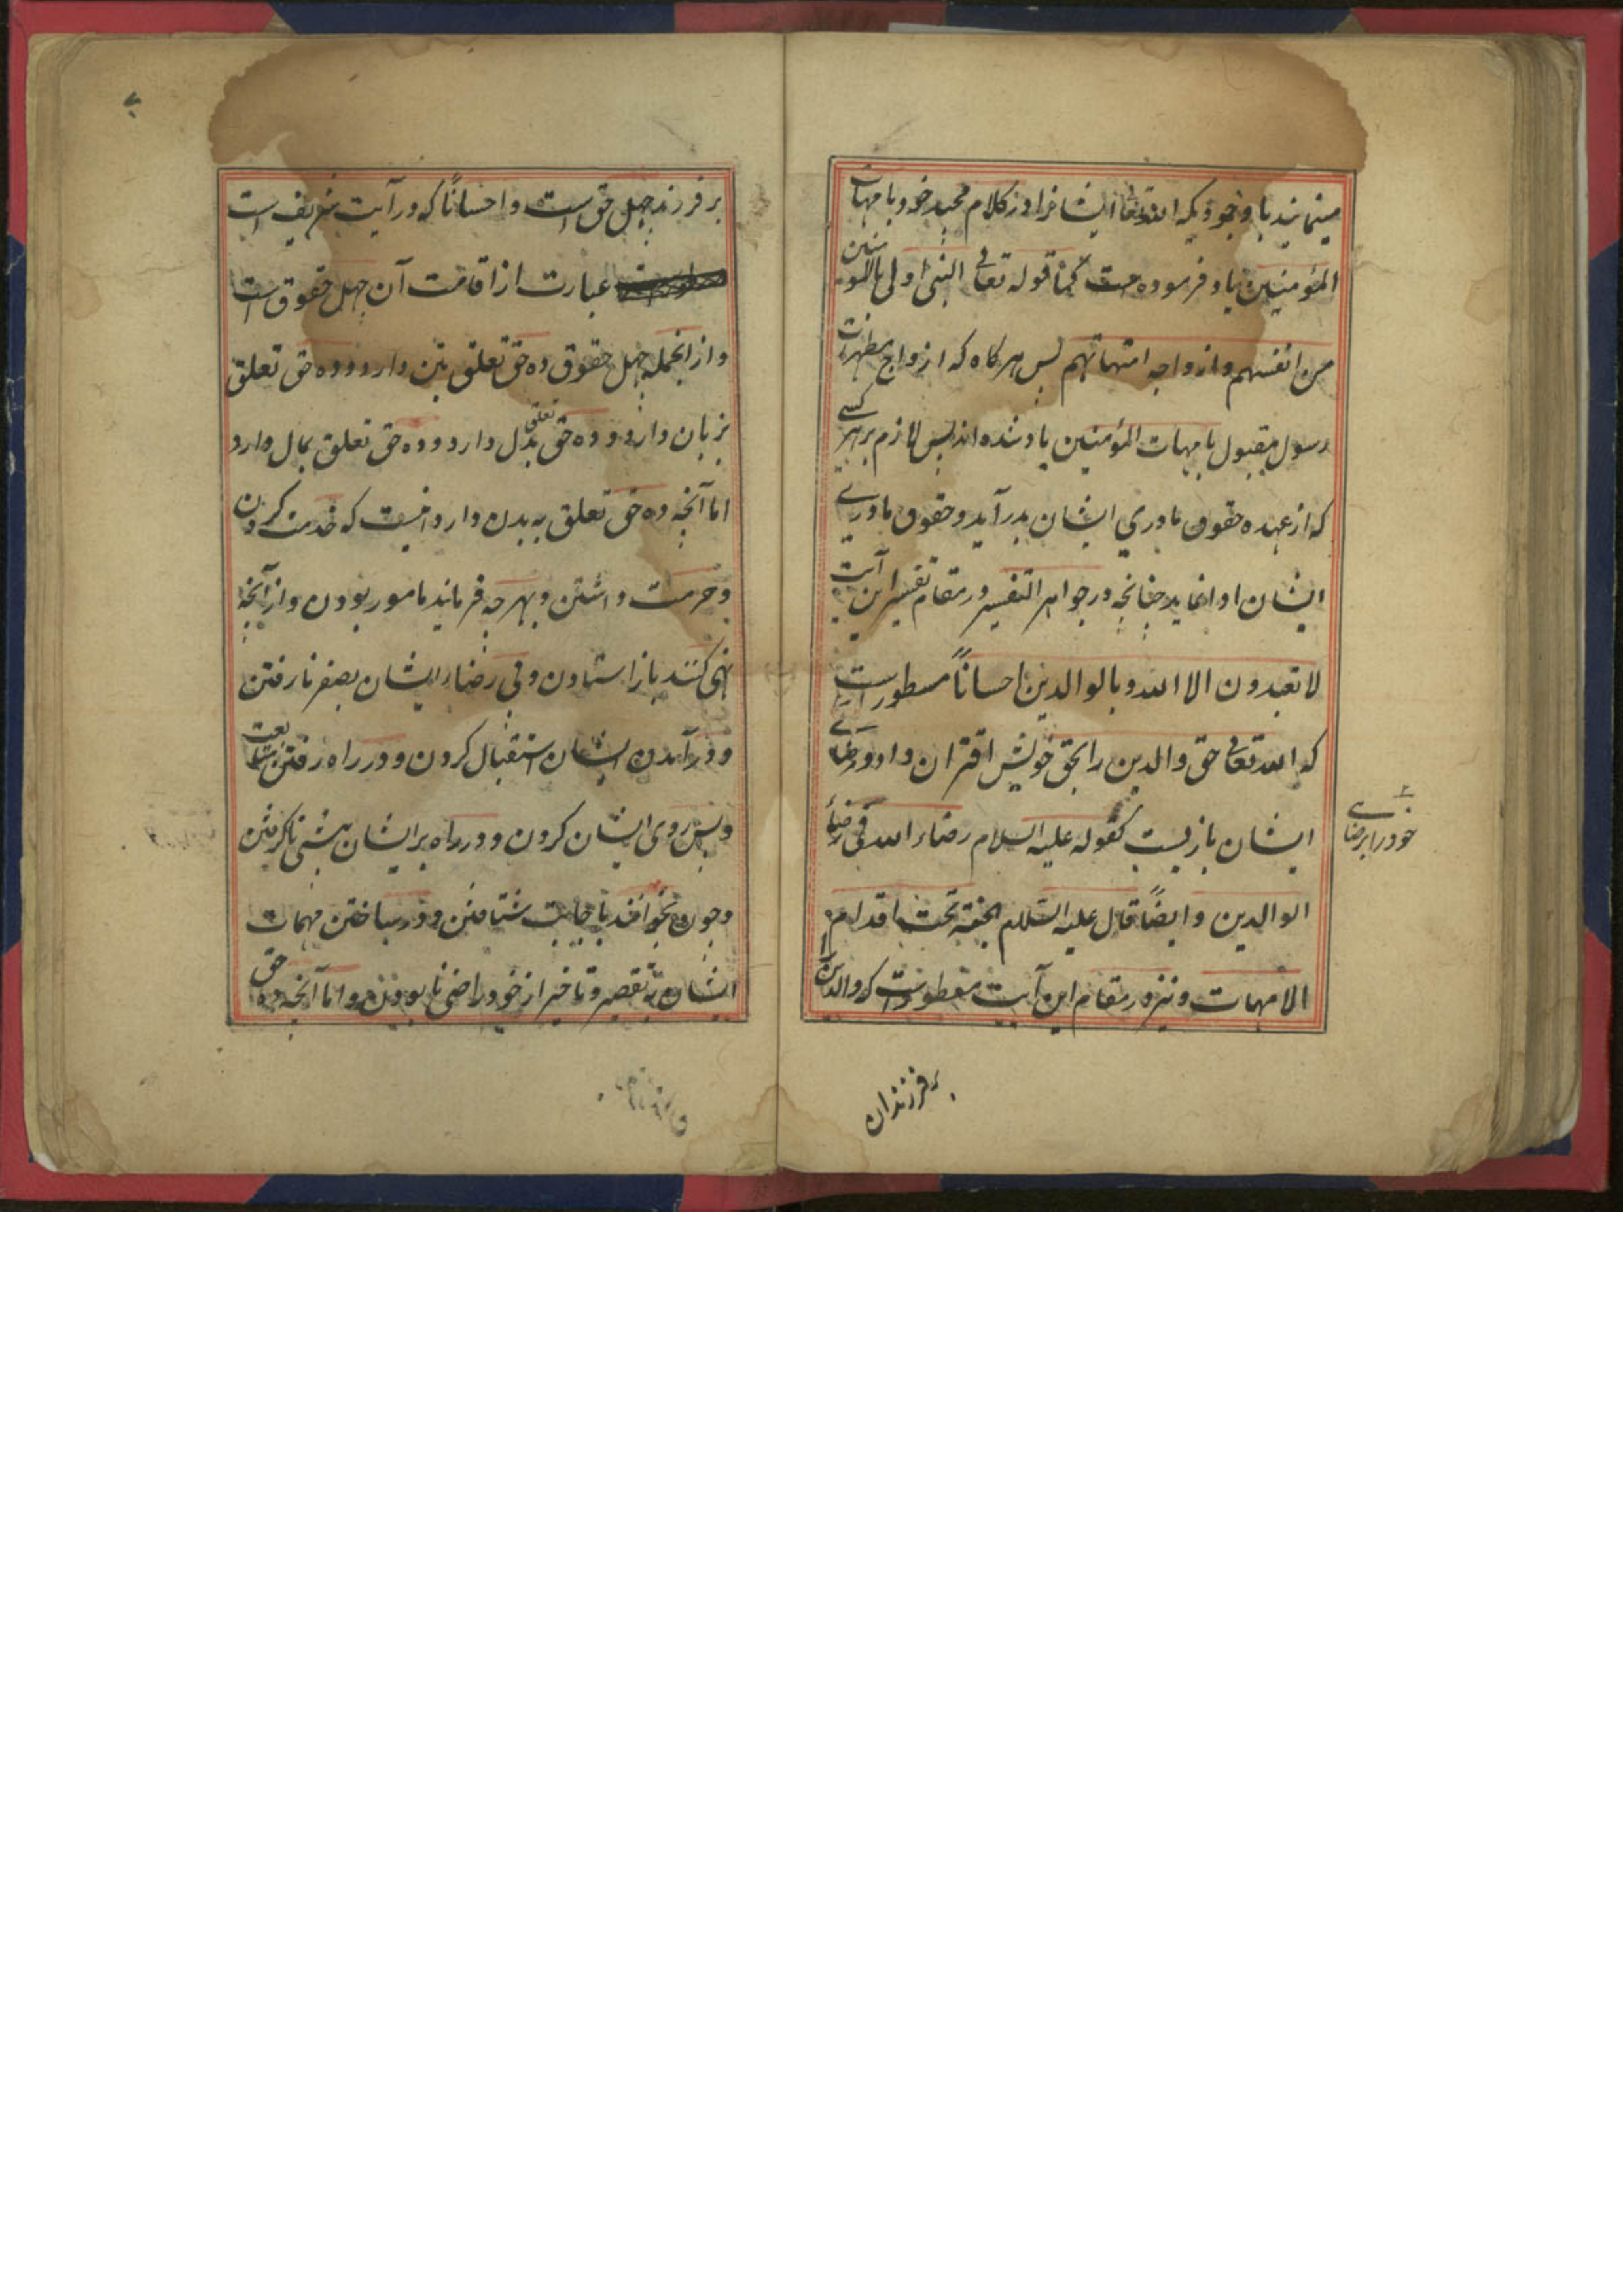 مینمایند با وجودیکه الله تعالی ایشانرا در کلام مجید خود بامهات
المؤمنین یاد فرموده است کما قوله تعالی النبی اولی بالمؤمنین
من انفسهم و ازواجه امهاتهم پس هر کاه که ازواج مطهرات
رسول مقبول بامهات المؤمنین یاد شده اند پس لازم بر هر کسے
که از عهده حقوق مادری ایشان بدر آید و حقوق مادرے
ایشان ادا نماید چنانچه در جواهر التفسیر در مقام تفسیر این آیت
لا تعبدون الا الله و بالوالدین احسانًا مسطور است
که الله تعالی حق والدین را بحق خویش اقتران داد و رضاے
خود را برضاے
ایشان باز بست کقوله علیه السلام رضاء الله فی رضاء
الوالدین و ایضًا قال علیه السلام الجنة تحت اقدام
الامهات و نیز در مقام این آیت مسطور است که والدین را
بر فرزندان
بر فرزند چهل حق است و احسانًا که در آیت شریف است
عبارت از اقامت آن چهل حقوق است
و از انجمله چهل حقوق ده حق تعلق بتن دارد و ده حق تعلق
بزبان دارد و ده حق تعلق بدل دارد و ده حق تعلق بمال دارد
اما آنچه ده حق تعلق به بدن دارد اینست که خدمت کردن
و حرمت داشتن و بهر چه فرمایند مامور بودن و از آنچه
نهی کنند باز استادن و بی رضاء ایشان بصفر نارفتن
و در آمدن ایشان استقبال کردن و در راه رفتن متابعت
و پس روی ایشان کردن و در راه بر ایشان پیشی ناکرفتن
و چون بخوانند باجابت شتافتن و در ساختن مهمات
ایشان بتقصیر و تاخیر از خود راضی نابودن و اما آنچه ده حق